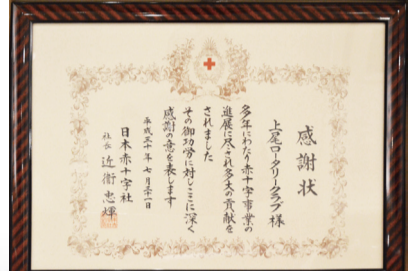 感謝状
上尾ロータリークラブ様
多年にわたり赤十字事業の
進展に尽され多大の貢献を
されました
その御功労に対しここに深く
感謝の意を表します
平成三十年七月三十一日
日本赤十字社
社長 近衞忠煇